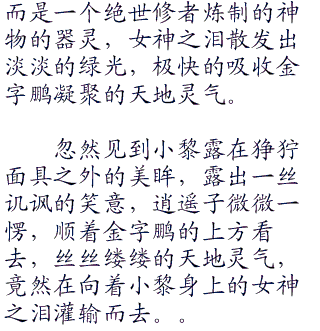 而是一个绝世修者炼制的神
物的器灵，女神之泪散发出
淡淡的绿光，极快的吸收金
字鹏凝聚的天地灵气。
忽然见到小黎露在狰狞
面具之外的美眸，露出一丝
讥讽的笑意，逍遥子微微一
愣，顺着金字鹏的上方看
去，丝丝缕缕的天地灵气，
竟然在向着小黎身上的女神
之泪灌输而去。。